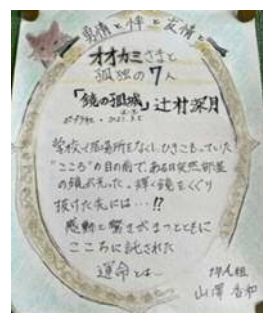 友情と絆と友情と
オオカミさまと
孤独の7人
「鏡の孤城」辻村深月
ポプラ社
学校で居場所をなくし、ひきこもっていた
"こころ"の目の前で、ある日突然部屋
の鏡が光った。輝く鏡をくぐり
抜けた先には…!?
感動と驚きがまつとともに
こころに託された
運命とは…
山澤